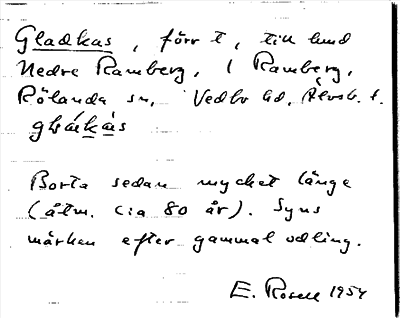 Gladkas, förr t, till hmd
Nedre Ramberg, 1 Ramberg,
Rölanda sn, Vedbo hd, Älvsb. l.
Borta sedan mycket länge
(åtm. cia 80 år). Syns
märken efter gammal odling.
E. Rosell 1954